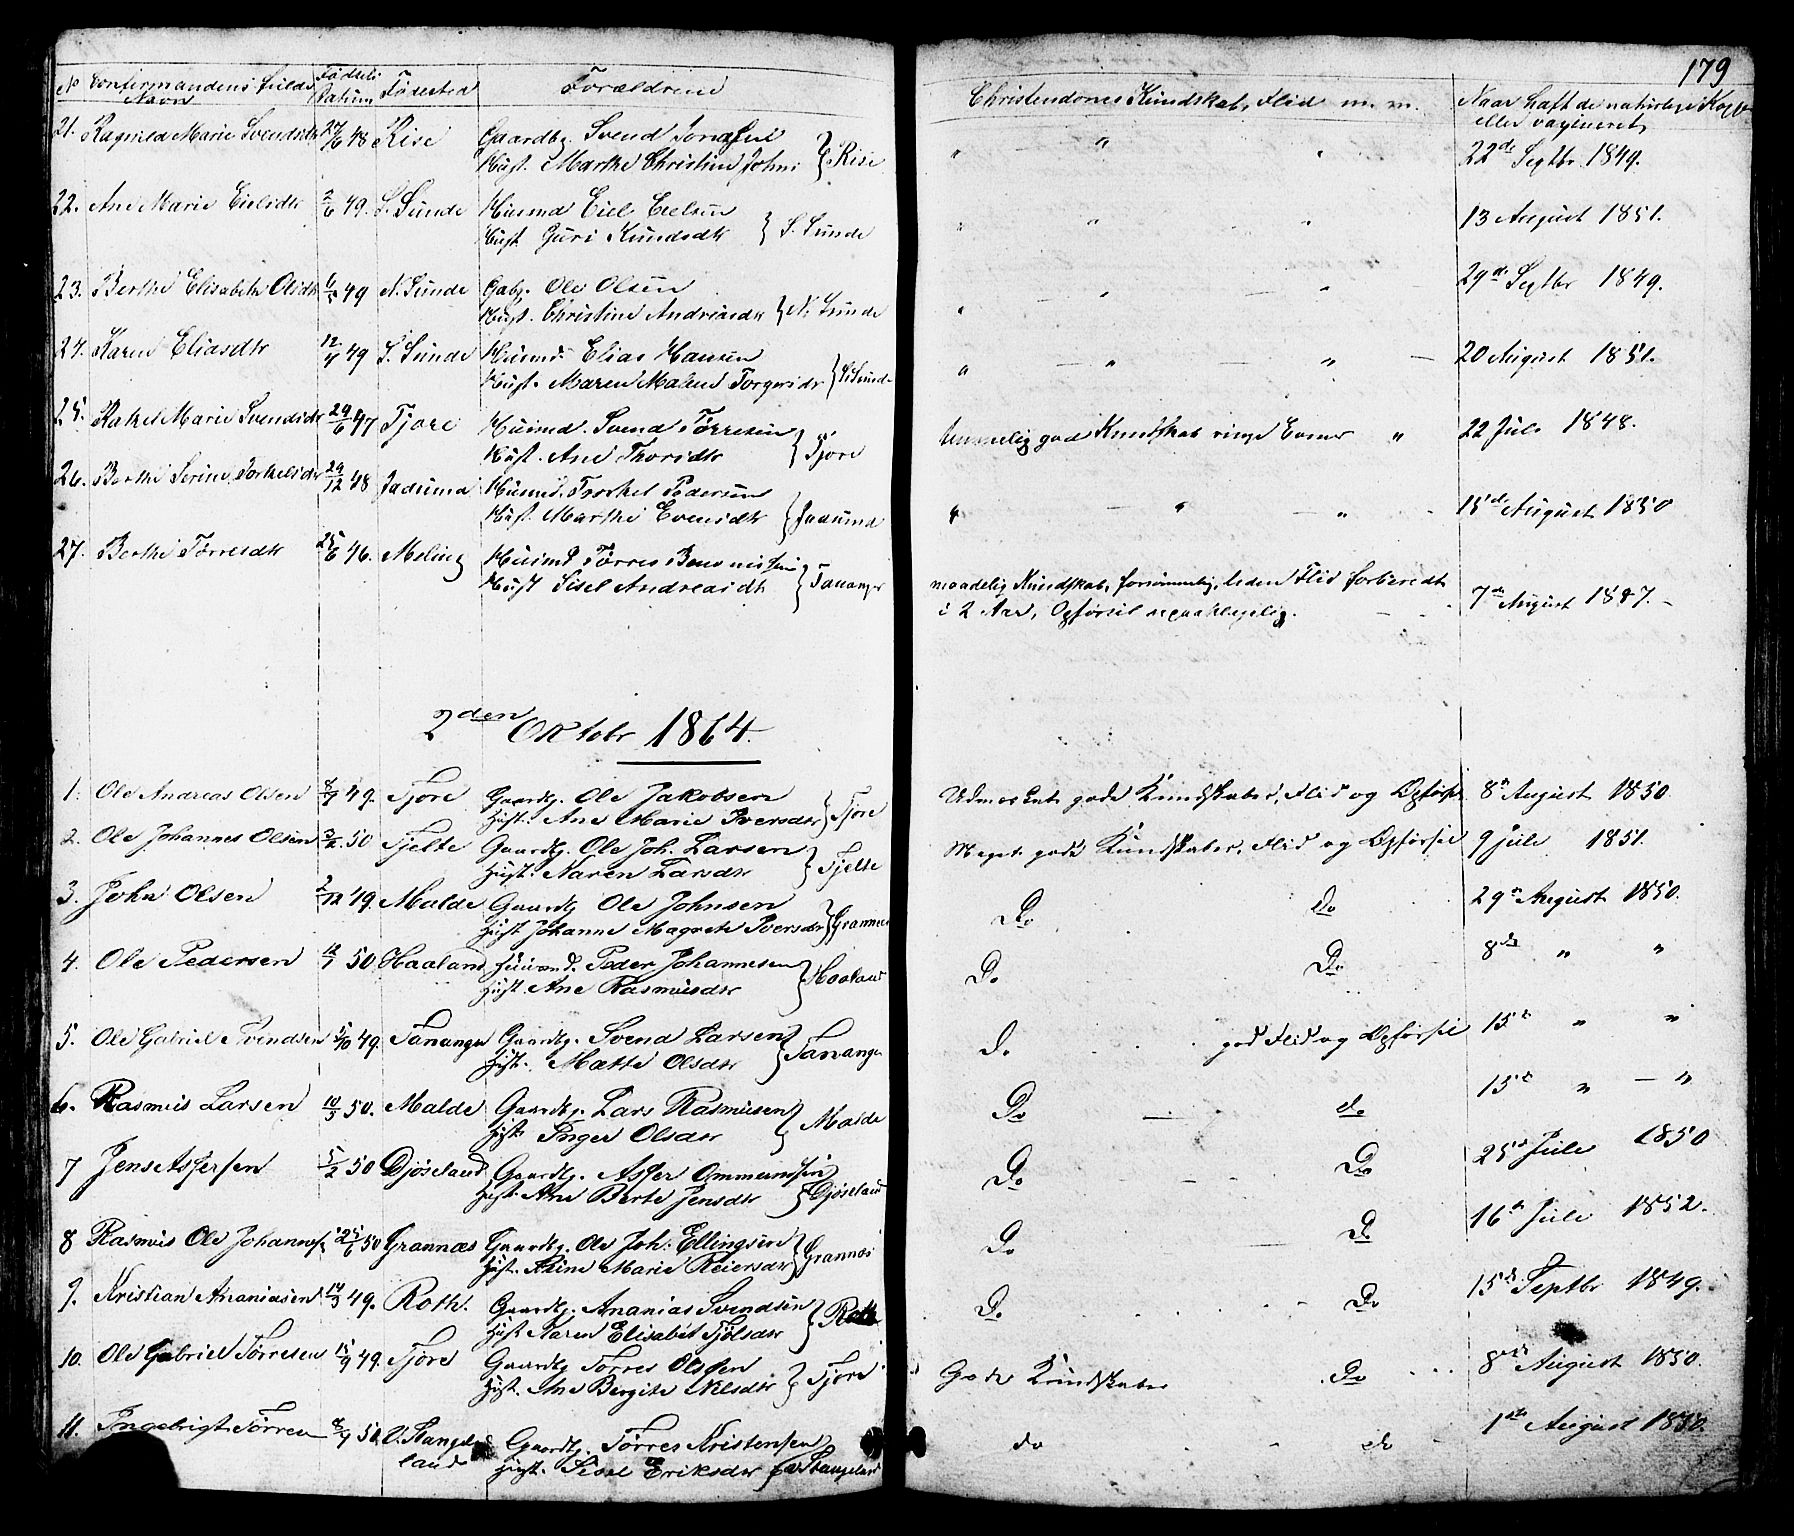 179
No Confirmandens fulde Navn Fødsels Datum Fødested Forældrene Christendoms Kundskab, Flid m. m. Naar haft de naturlige Kopper eller vaccineret
21. Ragnild Marie Svendsdtr 27/6 48 Rise Gaardbr. Svend Jonassen
Hust. Marthe Christine Johns } Rise " " " 22de Septbr. 1849.
22. Ane Marie Eielsdtr 2/6 49. S. Sunde Husmd Eiel Eielsen
Hust. Guri Knudsdtr } S. Sunde " " " 13 August 1851.
23. Berthe Elisabethe Olsdtr 6/5 49 N. Sunde Gabr. Ole Olsen
Hust. Christine Andreasdr } N. Sunde " " " 29de Septbr 1849.
24. Karen Eliasdtr 12/4 49 S. Sunde Husmd. Elias Hansen
Hust. Maren Malene Torgersdr } S. Sunde " " " 20 August 1851.
25. Rakel Marie Svendsdtr 29/6 47 Tjore Husmd. Svend Tørresen
Hust. Ane Thorsdtr } Tjore god Kundskab ringe Evner " 22 Juli 1848.
26. Berthe Serine Torkelsdtr 29/12 48 Jadsund Husmd. Torkel Pedersen
Hust. Marthe Evensdtr } Jadsund " " " 15de August 1850
27. Berthe Tørresdtr 25/6 46. Meling Husmd Tørres
Hust Sisel Andreasdtr } Tananger maadelig Kundskab, forsømmelig, liden Flid forberedt
i 2 Aar, Opførsel upaaklagelig. 7de August 1847.
2den Oktobr 1864.
1. Ole Andreas Olsen 8/7 49. Tjore Gaardbr. Ole Jakobsen
Hust. Ane Marie Iversdtr } Tjore Udmærket gode Kundskaber, Flid og Opførsel 8de August 1850.
2. Ole Johannes Olsen 3/2 50 Tjelte Gaardbr. Ole Joh. Larsen
Hust. Karen Larsdtr } Tjelte Meget gode Kundskaber, Flid og Opførsel 9 Juli 1851.
3. John Olsen 2/12 49. Malde Gaardbr Ole Johnsen
Hust Johanne Magrete Iversdtr } Grannes Do do 29de August 1850.
4. Ole Pedersen 50 Haaland Huusmd. Peder Johannesen
Hust. Ane Rasmusdtr } Haaland Do Do 8de " "
5. Ole Gabriel Svendsen 5/10 49. Tananger Gaardbr. Svend Larsen
Hust. Mætte Olsdtr } Tananger Do god Flid og Opførsel 15de " "
6. Rasmus Larsen 10/3 50. Malde Gaardbr. Lars Rasmusen
Hust. Inger Olsdtr } Malde Do do 15de " "
7 Jens Assersen 5/2 50 Gjøseland Gaardbr. Asser Ommundsen
Hust. Ane Berte Jensdtr } Gjøseland Do Do 25de Juli 1850
8 Rasmus Ole Johannes. 25/6 50 Grannæs Gaardbr. Ole Joh. Ellingsen
Hust. Marie Reiersdtr } Grannæs Do Do 16de Juli 1852.
9. Kristian Ananiasen 14/3 49. Roth. Gaardbr. Ananias Svendsen
Hust Karen Elisabet } Roth Do Do 15de Septbr 1849.
10. Ole Gabriel Tørresen 15/9 49. Tjore Gaardbr Tørres Olssen
Hust. Ane Bergite Nilsdtr } Tjore Gode Kundskaber Do 8de August 1850.
11. Ingebrigt Tørresen 8/7 50. V. Stange-
land Gaardbr. Tørres Kristensen
Hust. Sissel Eriksdtr } V. Stangeland do do 1ste August 1850.